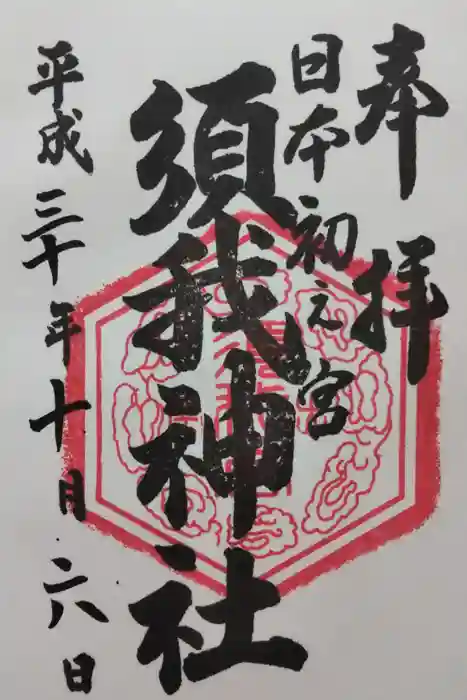 奉拝
日本初之宮
須我神社
平成三十年十月二八日